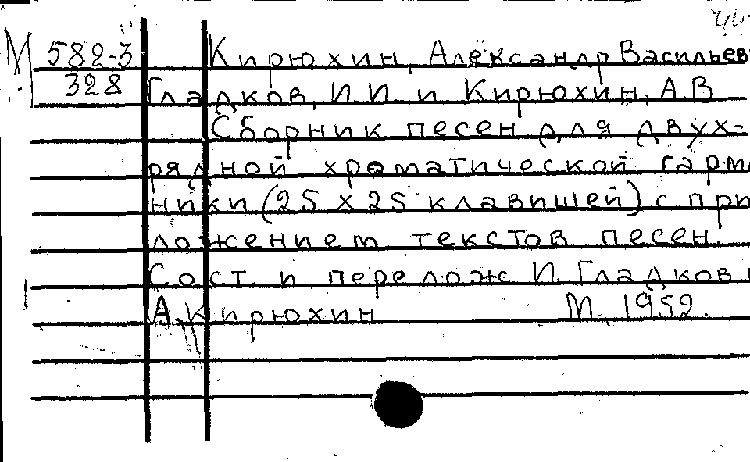 М 582-3 Кирюхин, Александр Васильев
328 Гладков, И.И. и Кирюхин, А.В
Сборник песен для двух-
рядной хроматической гарм
ники (25 х 25 клавишей) с при
ложением текстов песен.
Сост. и перелож И. Гладков и
А. Кирюхин М. 1952.